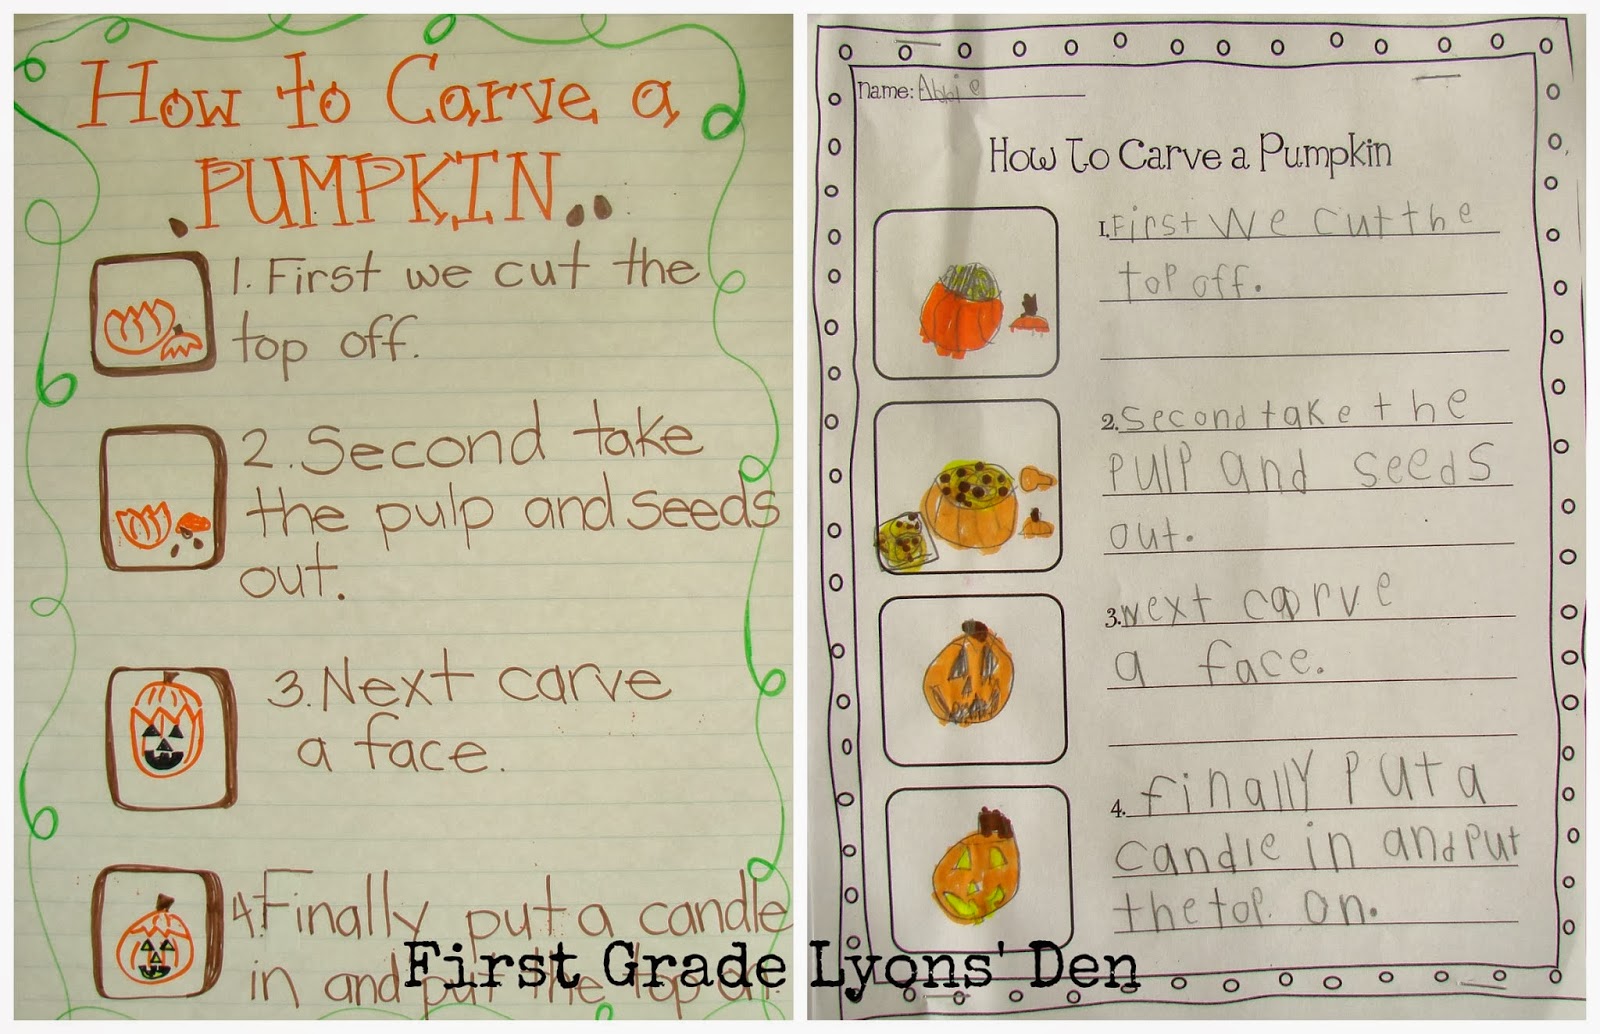 How to Carve a
PUMPKIN
1. First we cut the
top off.
2. Second take
the pulp and seeds
out.
3. Next carve
a face.
4. Finally put a candle
in and put the top on.
Name: Abbie
How to Carve a Pumpkin
1. First We cut the
top off.
2. Second take the
pulp and seeds
out.
3. Next carve
a face.
4. Finally put a
candle in and put
the top on.
First Grade Lyons' Den